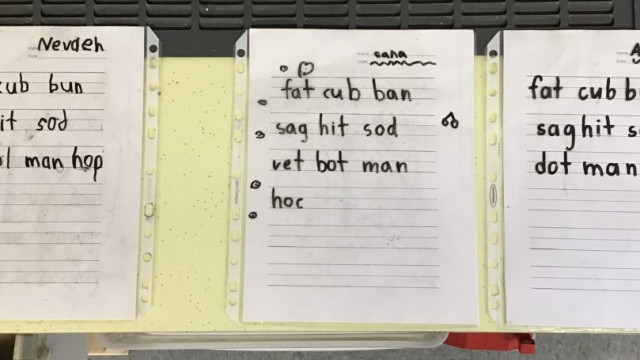 Nevaeh
cub bun
it sod
man hop
cana
fat cub ban
sag hit sod
vet bot man
hoc
fat cub b
sag hit s
dot man